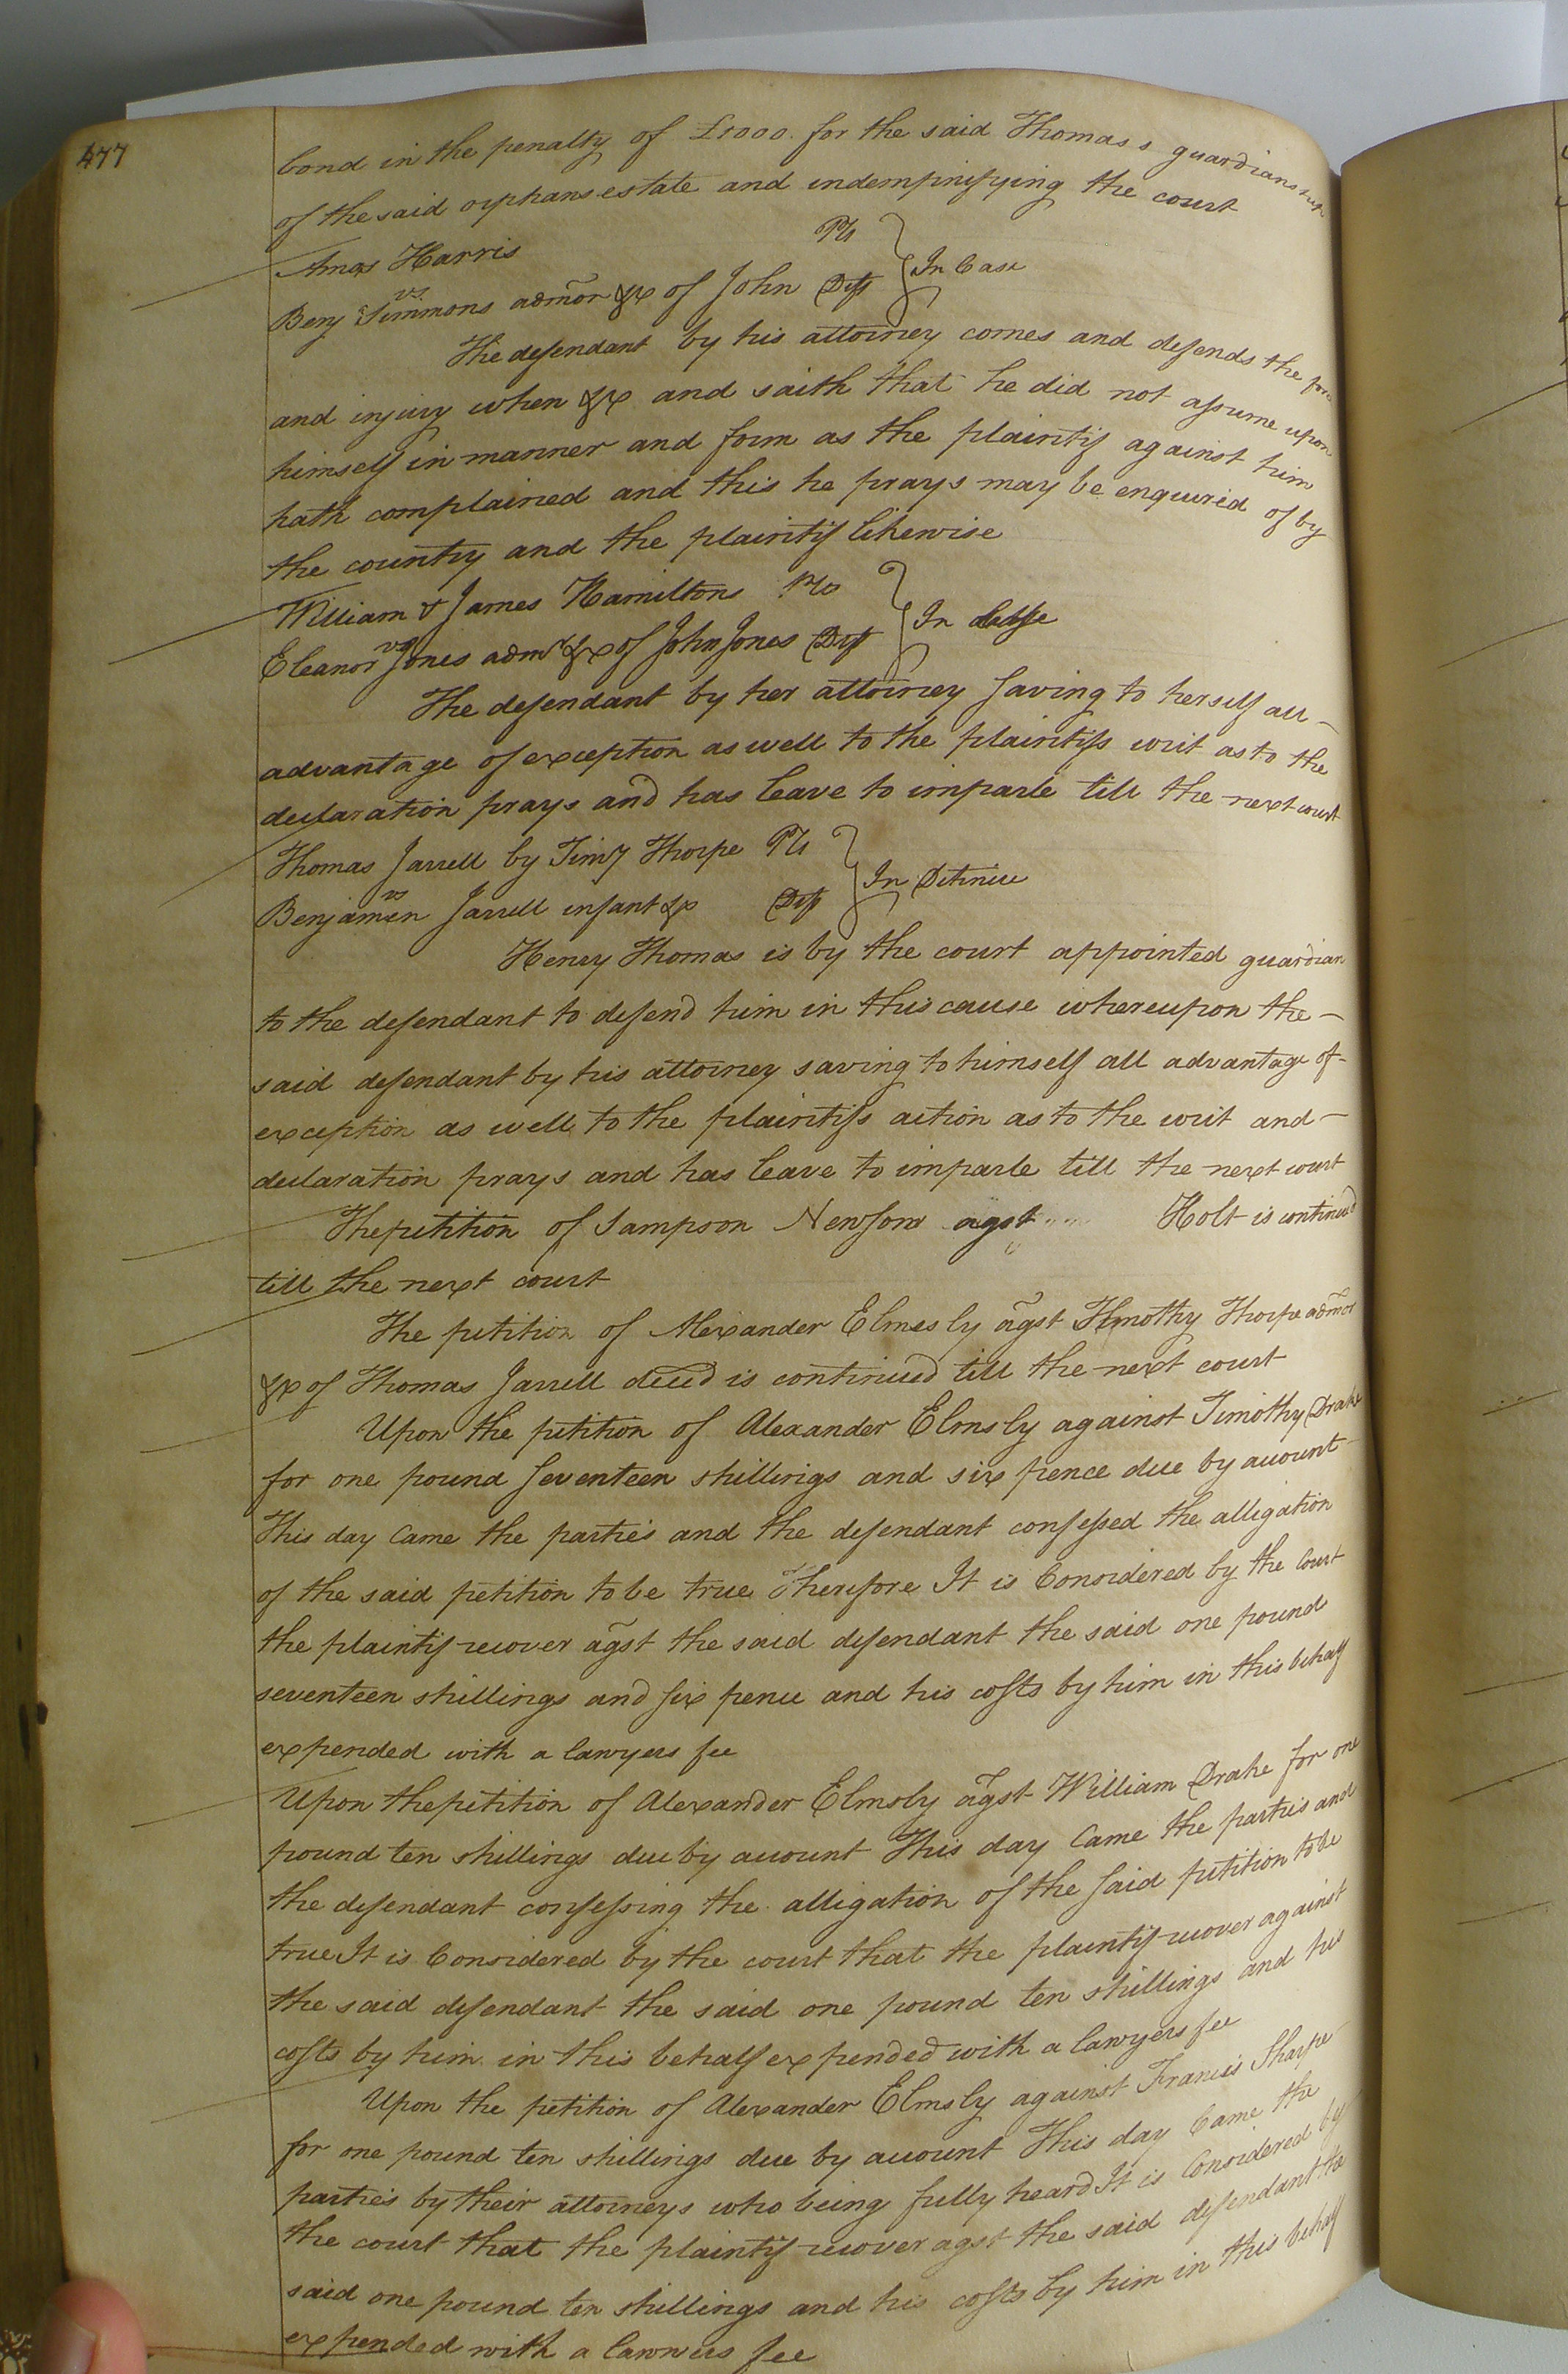 477
bond in the penalty of £1000. for the said Thomas s guardianship
of the said orphans estate and indempnifying the court
Amos Harris Plt
vs } In Case
Benj Simmons admor &c of John Deft
The defendant by his attorney comes and defends the force
and injury when &c and saith that he did not assume upon
himself in manner and form as the plaintif against him
hath complained and this he prays may be enquired of by
the country and the plaintif likewise
William & James Hamiltons Plts
vs } In Case
Eleanor Jones admr &c of John Jones Deft
The defendant by her attorney saving to herself all
advantage of exception as well to the plaintifs writ as to the
declaration prays and has leave to imparle till the next court
Thomas Jarrell by Timy Thorpe Plt
vs } In Detinue
Benjamin Jarrell infant &c Deft
Henry Thomas is by the court appointed guardian
to the defendant to defend him in this cause whereupon the
said defendant by his attorney saving to himself all advantage of
exception as well to the plaintifs action as to the writ and
declaration prays and has leave to imparle till the next court
The petition of Sampson Newsom agst Holt is continued
till the next court
The petition of Alexander Elmesly agst Timothy Thorpe admor
&c of Thomas Jarrell deced is continued till the next court
Upon the petition of Alexander Elmsly against Timothy Drake
for one pound seventeen shillings and six pence due by account
This day Came the parties and the defendant confessed the alligation
of the said petition to be true Therefore It is Considered by the Court
the plaintif recover agst the said defendant the said one pound
seventeen shillings and six pence and his costs by him in this behalf
expended with a lawyers fee
Upon the petition of Alexander Elmsly agst William Drake for one
pound ten shillings due by account This day Came the parties and
the defendant confessing the alligation of the said petition to be
true It is Considered by the court that the plaintif recover against
the said defendant the said one pound ten shillings and his
costs by him in this behalf expended with a lawyers fee
Upon the petition of Alexander Elmsly against Francis Sharpe
for one pound ten shillings due by account This day Came the
parties by their attorneys who being fully heard It is Considered by
the court that the plaintif recover agst the said defendant the
said one pound ten shillings and his costs by him in this behalf
expended with a lawyers fee